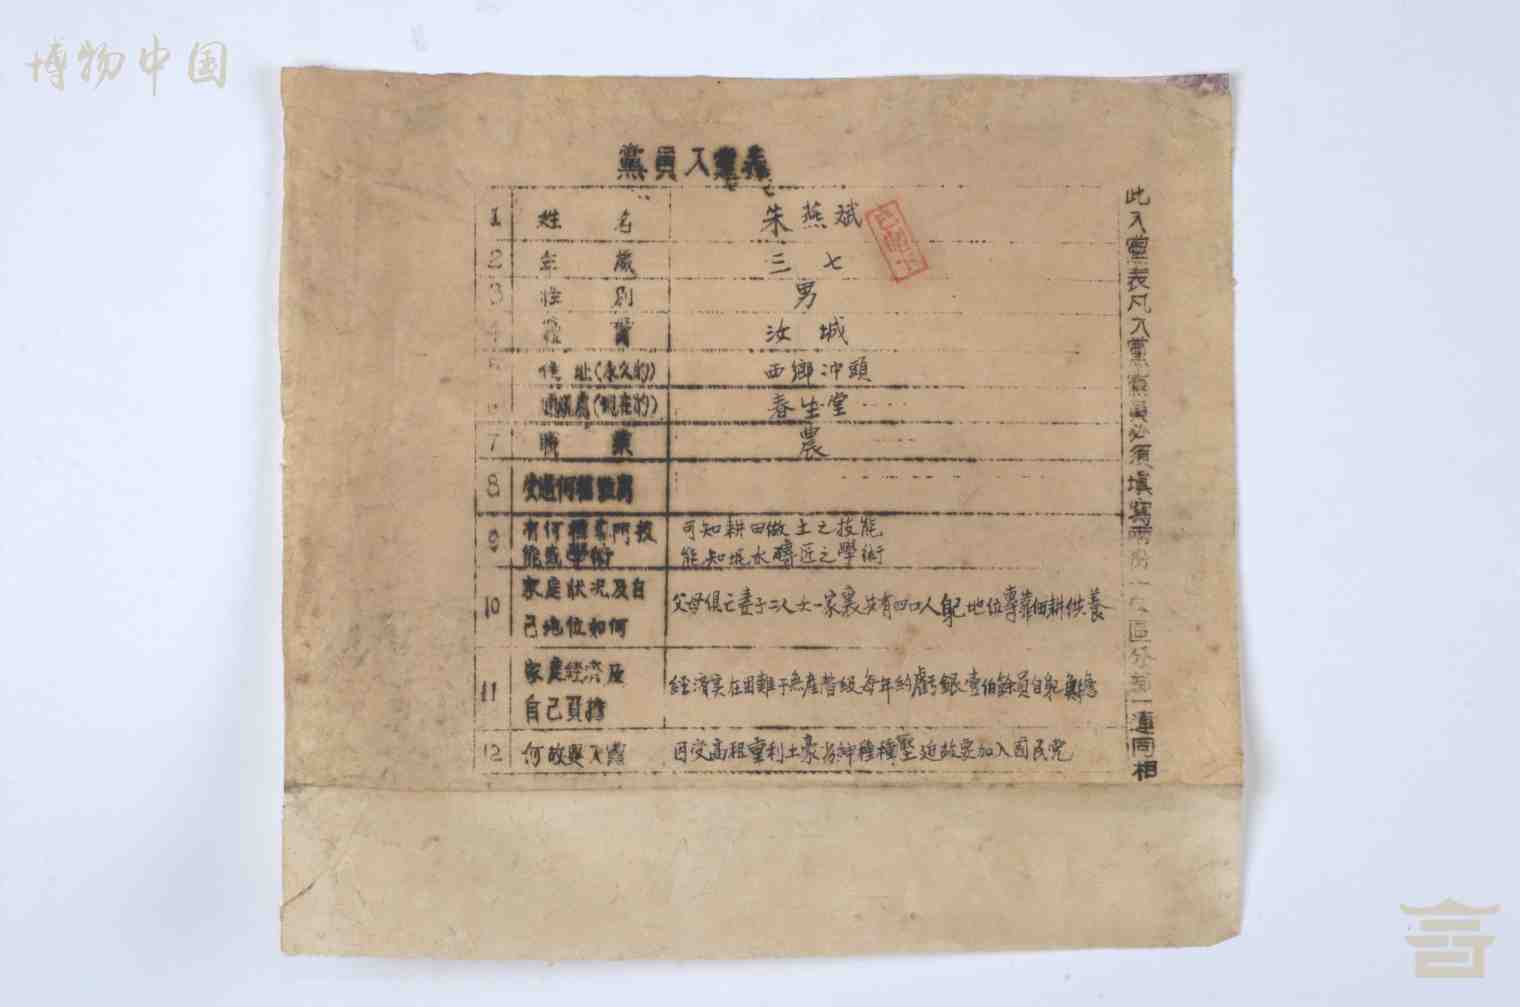 博物中国
黨員入黨表
1 姓名 朱燕斌
2 年歲 三七
3 性別 男
4 籍貫 汝城
住址(永久的) 西鄉沖頭
通訊處(現在的) 春生堂
7 職業 農
8 受過何種教育
9 有何種專門技能或學術 可知耕田做土之技能
能知坭水磚匠之學術
10 家庭狀況及自己地位如何 父母俱亡妻子二人女一家裏共有四口人躬地位專靠佃耕供養
11 家庭經濟及自己負擔 經濟实在困難于無產階級每年約虧銀壹佰餘員自躬
12 何故要入黨 因受高租重利土豪劣紳種種壓迫故要加入国民党
此入黨表凡入黨黨員必須填寫兩份一區分部一連同相